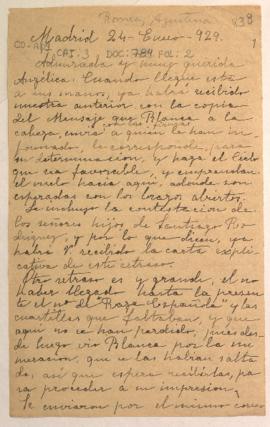 Romeo, Agustina
838
Madrid 24-Enero-929.
CO-ABA
CAJ: 3 DOC: 784 FOL: 2
1
Admirada y muy querida
Angélica: Cuando llegue esta
a sus manos, ya habrá recibido
nuestra anterior con la copia
del Mensaje que Blanca a la
cabeza, envía a quien le han in
formado, le corresponde, para
su determinación, y haga el Cielo
que sea favorable, y emprendan
el vuelo hacia aquí, adonde son
esperadas con los brazos abiertos.
Le incluyo la contestación de
los señores hijos de Santiago Ro
dríguez, y por lo que dicen, ya
habrá Vd. recibido la carta expli
cativa de este retraso.
Otro retraso es y grande, el no
haber llegado hasta la presen
te el nº de Raza Española y las
cuartillas que faltaban, y que
aquí no se han perdido, pues des
de luego vio Blanca por la nu
meración, que se las habían salta
do, así que espera recibirlas, pa
ra proceder a su impresión,
Se enviaron por el mismo correo